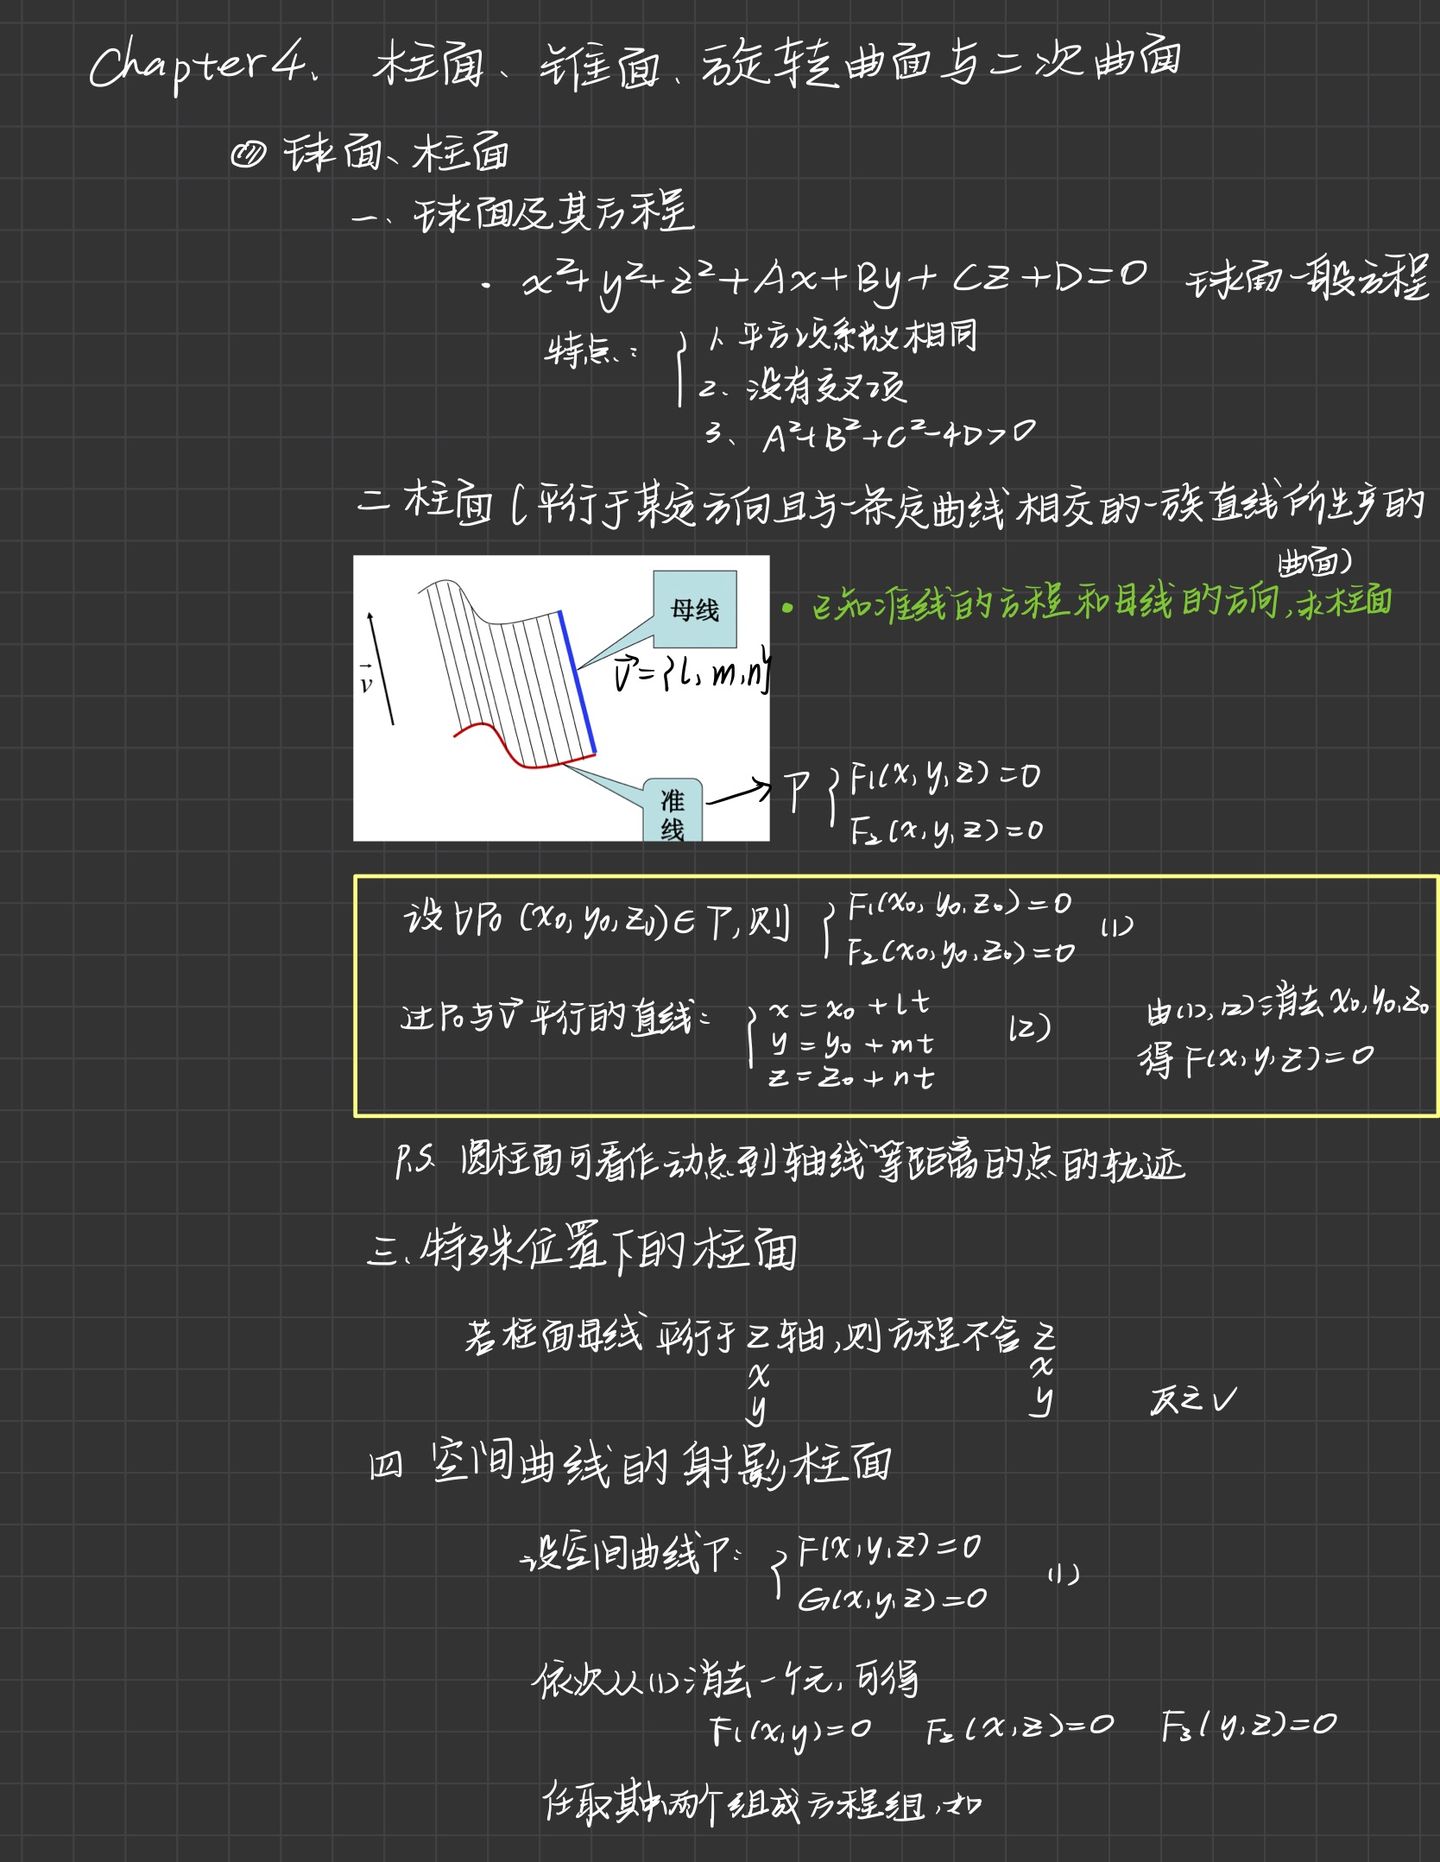 Chapter 4、 柱面、锥面、旋转曲面与二次曲面
球面、柱面
一、球面及其方程
· x²+y²+z²+Ax+By+Cz+D=0 球面一般方程
特点:
1、平方项系数相同
2、没有交叉项
3、A²+B²+C²-4D>0
二 柱面(平行于某定方向且与一条定曲线相交的一族直线所生产的
曲面)
· 已知准线的方程和母线的方向,求柱面
母线
v⃗={l,m,n}
v⃗
准
线
Γ { F₁(x,y,z)=0
F₂(x,y,z)=0
设∀P₀(x₀,y₀,z₀)∈Γ,则 { F₁(x₀,y₀,z₀)=0
F₂(x₀,y₀,z₀)=0 (1)
过P₀与v⃗平行的直线: { x=x₀+lt
y=y₀+mt (2)
z=z₀+nt
由(1),(2)消去x₀,y₀,z₀
得F(x,y,z)=0
P.S. 圆柱面可看作动点到轴线等距离的点的轨迹
三、特殊位置下的柱面
若柱面母线平行于z轴,则方程不含z
x x
y y 反之√
四 空间曲线的射影柱面
设空间曲线Γ: { F(x,y,z)=0
G(x,y,z)=0 (1)
依次从(1)消去一个元,可得
F₁(x,y)=0 F₂(x,z)=0 F₃(y,z)=0
任取其中两个组成方程组,如